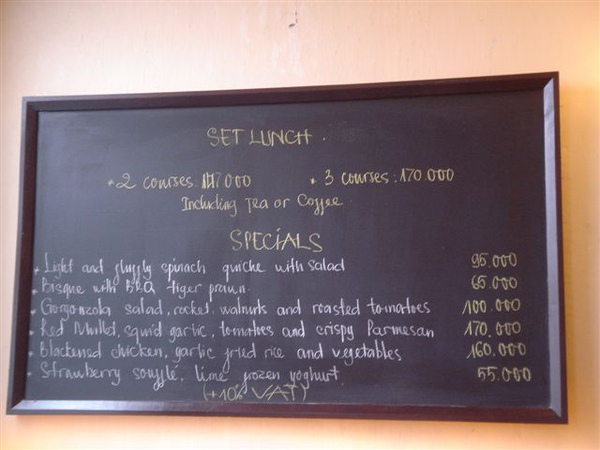 SET LUNCH.
* 2 courses: 147000 * 3 courses: 170.000
Including Tea or Coffee
SPECIALS
* Light and fluffy spinach quiche with salad 95.000
* Bisque with BBQ tiger prawn 65.000
* Gorgonzola salad, rocket, walnuts and roasted tomatoes 100.000
* Red Mullet, squid garlic, tomatoes and crispy Parmesan 170.000
* Blackened chicken, garlic fried rice and vegetables 160.000
* Strawberry souffle, lime frozen yoghurt. 55.000
(+10% VAT)